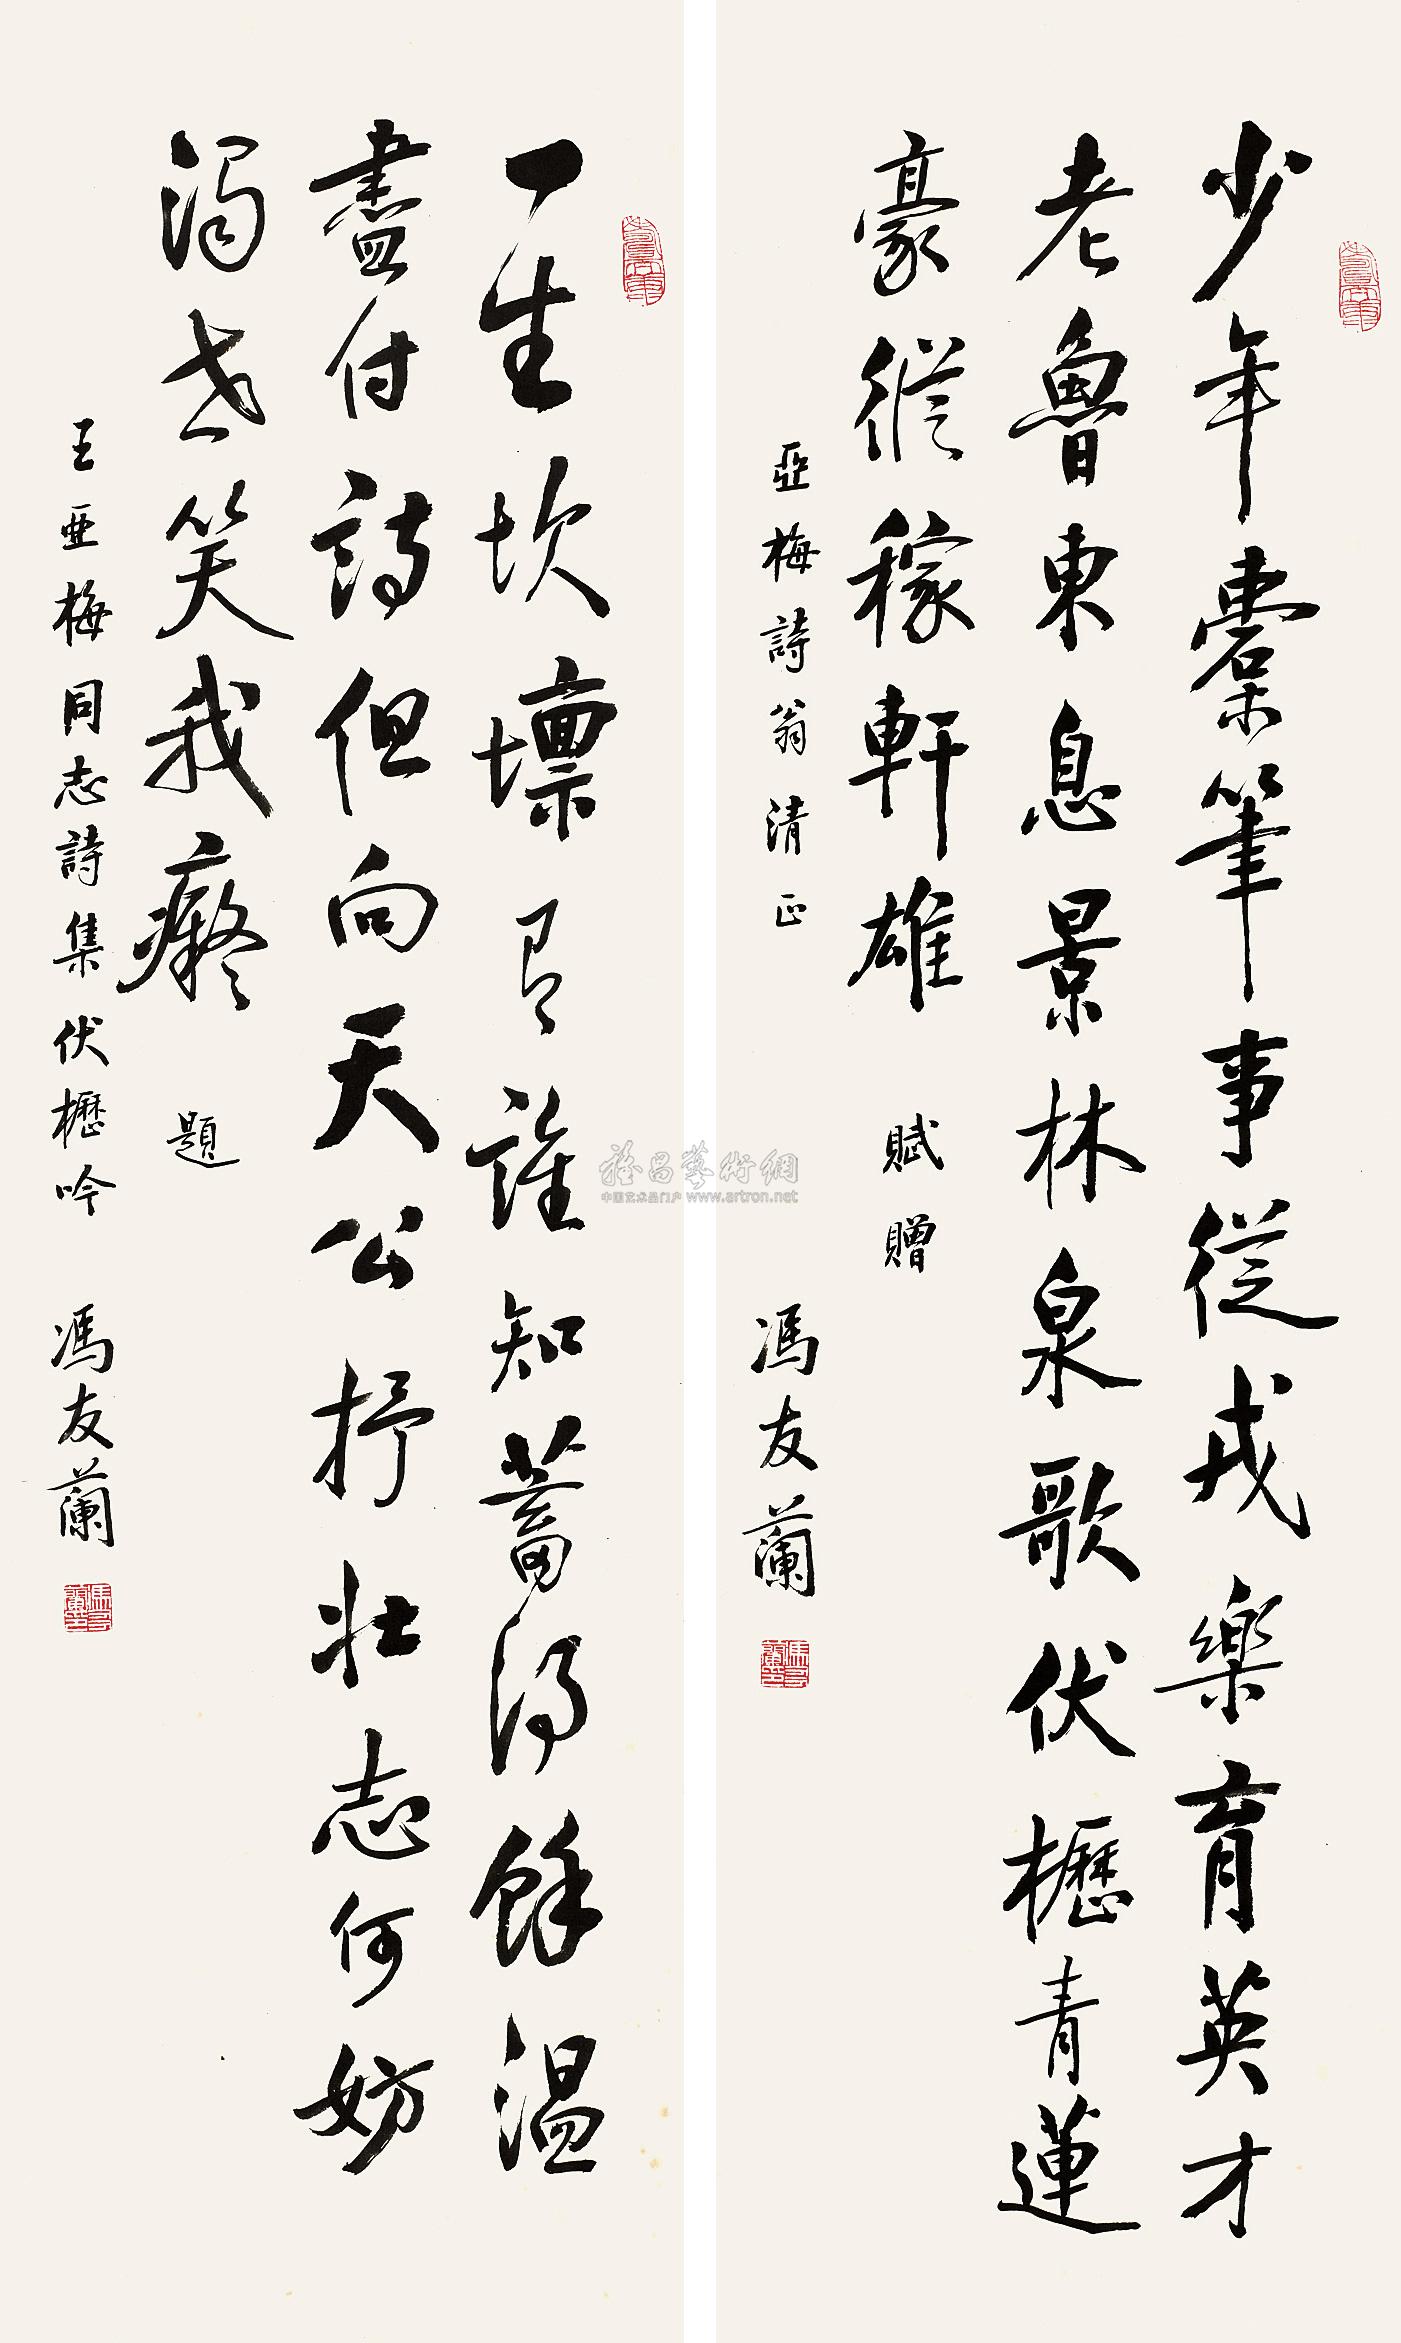 少年櫜筆事從戎樂育英才
老魯東息景林泉歌伏櫪青蓮
豪縱稼軒雄 賦贈
亞梅詩翁清正 馮友蘭
一生坎壈有誰知蓄得餘溫
盡付詩但向天公抒壯志何妨
濁世笑我癡 題
王亞梅同志詩集伏櫪吟 馮友蘭
雅昌藝術網
中国艺术品门户 www.artron.net